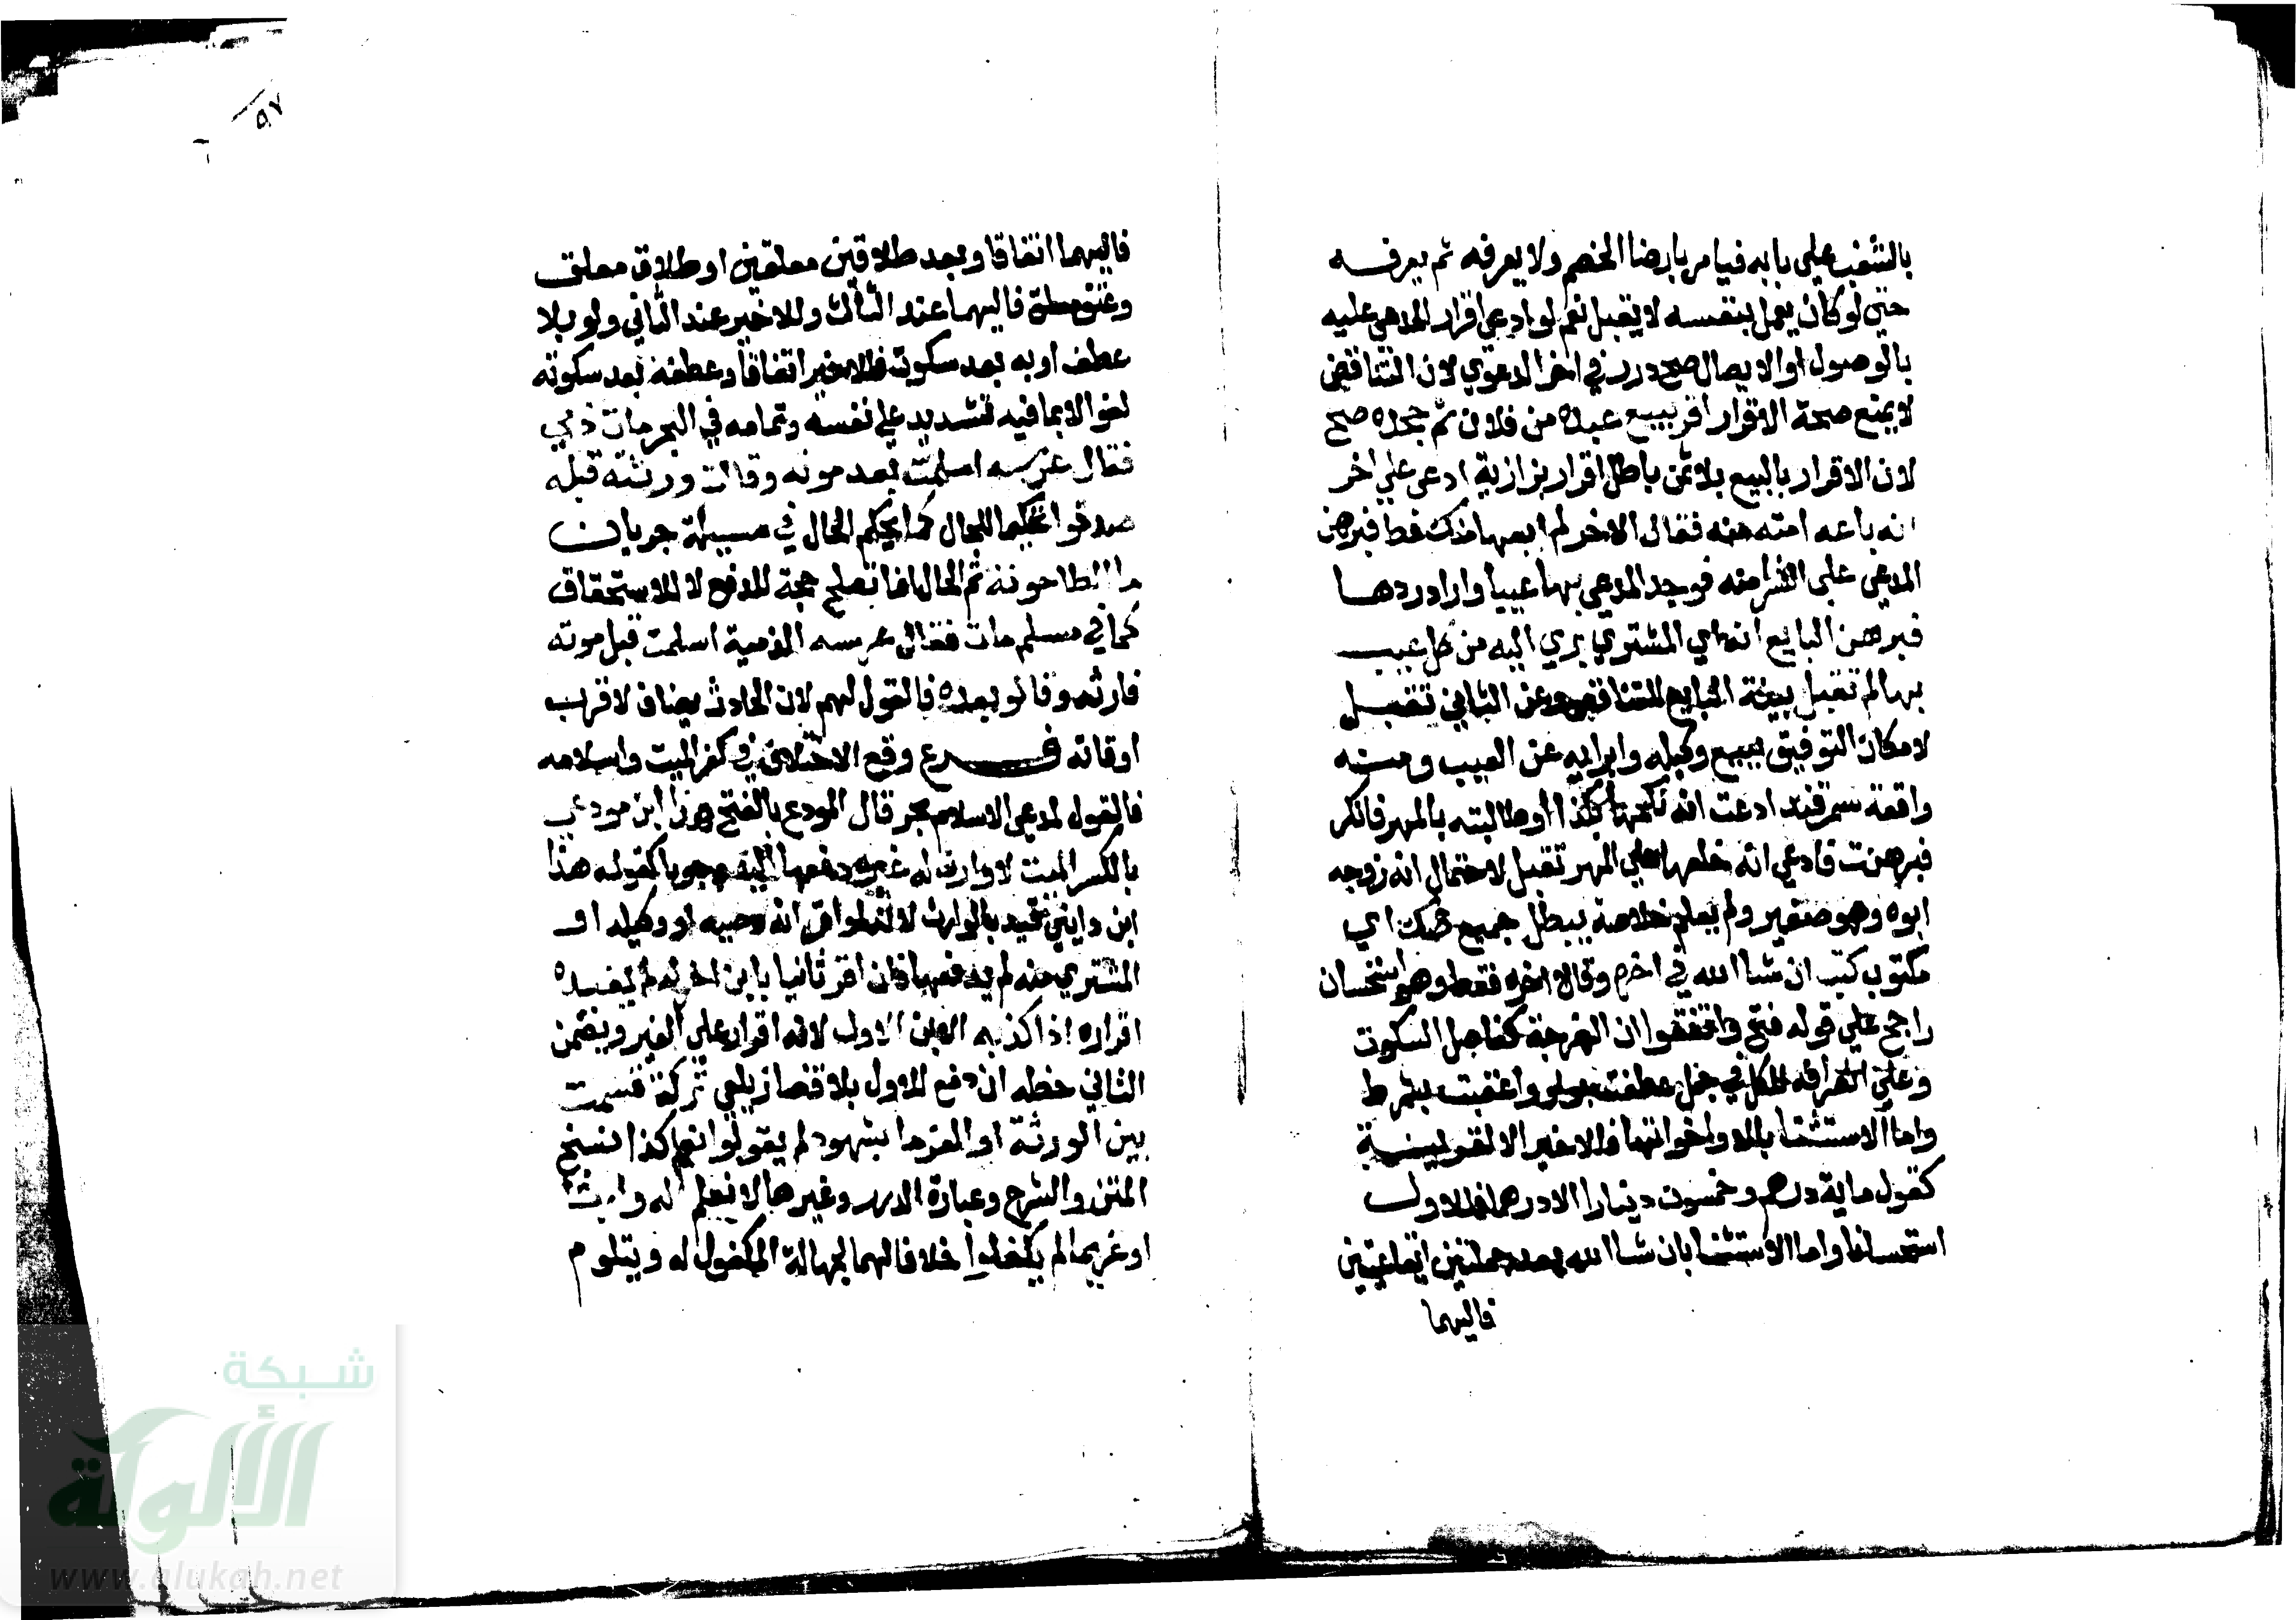 بالشغب على بابه فيامر بارضا الخصم ولا يعرفه ثم يعرفه
حتى لو كان يعمل بنفسه لا يقبل نعم لو ادعى اقرار المدعى عليه
بالوصول او الايصال صح درر في اخر الدعوي لان التناقض
لا يمنع صحة الاقرار اقر ببيع عبده من فلان ثم جحده صح
لان الاقرار بالبيع بلا ثمن باطل اقرار بزازية ادعى على اخر
انه باعه امته منه فقال الاخر لم ابعها منك قط فبرهن
المدعى على الشرا منه فوجد المدعي بها عيبا واراد ردها
فبرهن البايع انه اي المشتري بري اليه من كل عيب
بها لم تقبل بينة البايع للتناقض وعن الثاني تقبل
لامكان التوفيق ببيع وكيله وابرايه عن العيب ومنه
واقعة سمرقند ادعت انه نكحها بكذا وطالبته بالمهر فانكر
فبرهنت فادعى انه خلعها على المهر تقبل لاحتمال انه زوجه
ابوه وهو صغير ولم يعلم خلاصة يبطل جميع صك اي
مكتوب كتب ان شا الله في اخره وقالا اخره فقط وهو استحسان
راجح على قوله فتح واتفقوا ان الفرجة كفاصل السكوت
وعلى انصرافه للكل في جمل عطفت بواو واعقبت بشرط
واما الاستثنا بالا واخواتها فللاخير الا لقرينة
كقوله ماية درهم وخمسون دينارا الا درهما فللاول
استحسانا واما الاستثنا بان شا الله بعد جملتين ايقاعيتين
فاليهما
فاليهما اتفاقا وبعد طلاقين معلقين او طلاق معلق
وعتق معلق فاليهما عند الثالث وللاخير عند الثاني ولو بلا
عطف او به بعد سكوت فللاخير اتفاقا وعطفه بعد سكوته
لغو الا بما فيه تشديد على نفسه وتمامه في البحر مات ذمي
فقال عرسه اسلمت بعد موته وقالت ورثته قبله
صدقوا تحكيما للحال كما يحكم الحال في مسيلة جريان
ما الطاحونة ثم الحال انما تصلح حجة للدفع لا للاستحقاق
كما في مسلم مات فقال عرسه الذمية اسلمت قبل موته
فارثه وقالو بعده فالقول لهم لان الحادث يضاف لاقرب
اوقاته فرع وقع الاختلاف في كفر الميت واسلامه
فالقول لمدعى الاسلام بحر قال المودع بالفتح هذا ابن مودعي
بالكسر الميت لا وارث له غيره دفعها اليه وجوبا كقوله هذا
ابن دايني قيد بالوارث لانه لو اقر انه وصيه او وكيله او
المشتري منه لم يدفعها فان اقر ثانيا بابن اخر له لم يفيده
اقراره اذا كذبه الابن الاول لانه اقرار على الغير ويضمن
الثاني حظه ان دفع للاول بلا قضا زيلعي تركة قسمت
بين الورثة او الغرما بشهود لم يقولوا نعلم كذا نسخ
المتن والشرح وعبارة الدرر وغيرها لا نعلم له وارثا
او غريما لم يكفلوا خلافا لهما لجهالة المكفول له ويتلوم
٩٧
شبكة
الألوكة
www.alukah.net